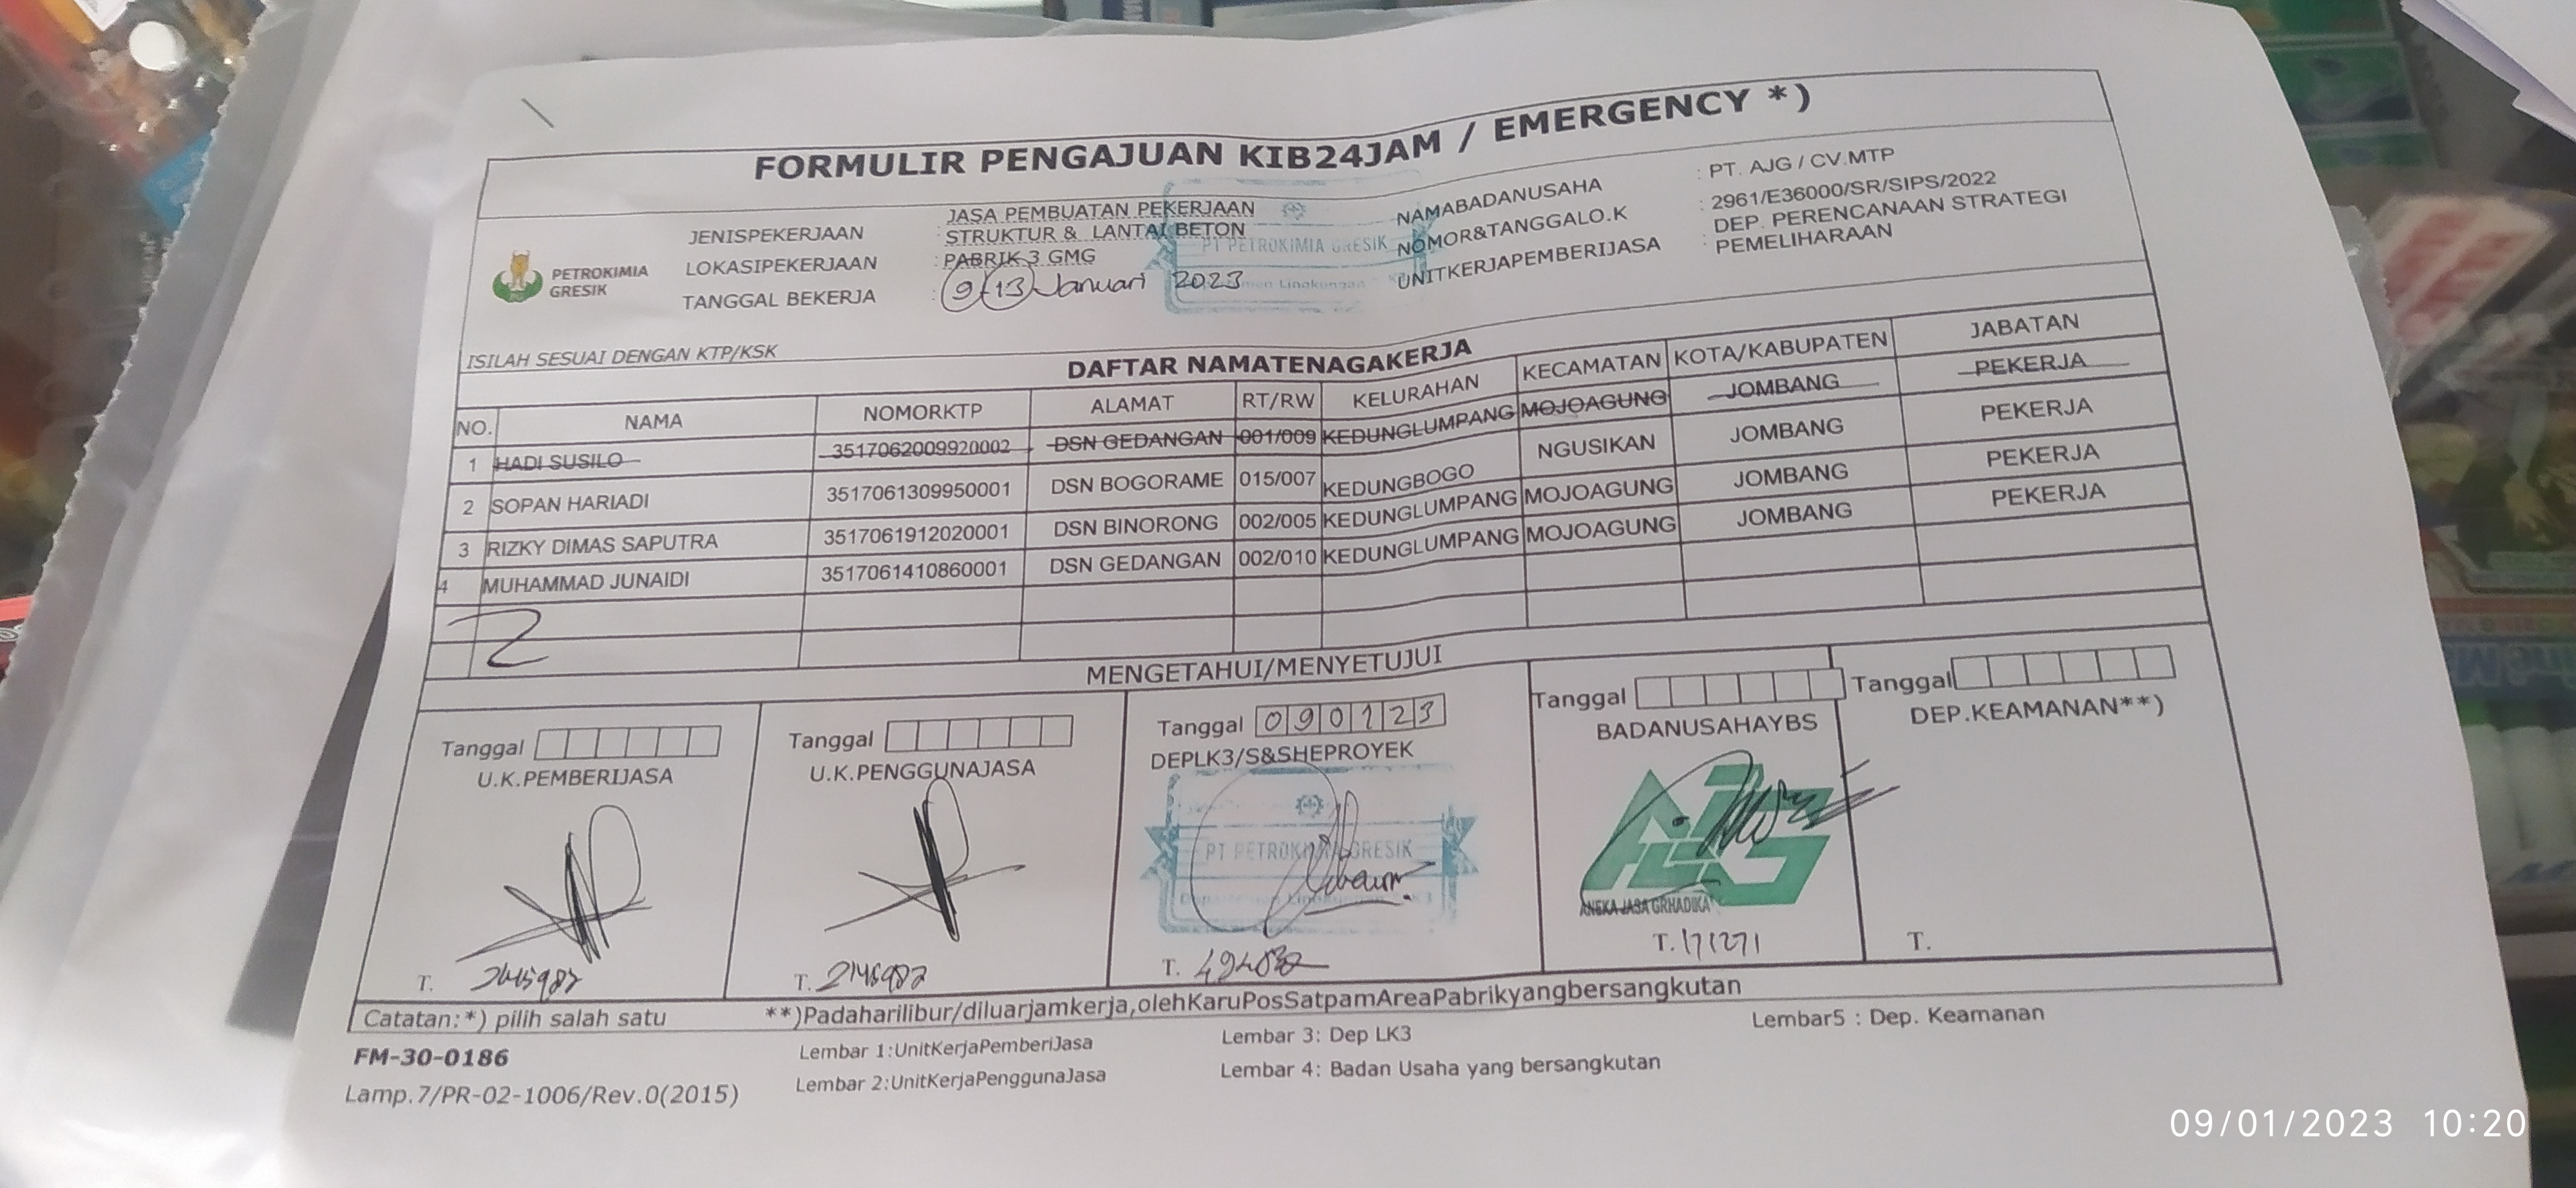 FORMULIR PENGAJUAN KIB24JAM / EMERGENCY *)
PETROKIMIA
GRESIK
JENISPEKERJAAN : JASA PEMBUATAN PEKERJAAN
STRUKTUR & LANTAI BETON
LOKASIPEKERJAAN : PABRIK 3 GMG
TANGGAL BEKERJA : 9-13 Januari 2023
NAMABADANUSAHA : PT. AJG / CV.MTP
NOMOR&TANGGALO.K : 2961/E36000/SR/SIPS/2022
UNITKERJAPEMBERIJASA : DEP. PERENCANAAN STRATEGI
PEMELIHARAAN
PT PETROKIMIA GRESIK
Lingkungan
ISILAH SESUAI DENGAN KTP/KSK
DAFTAR NAMATENAGAKERJA
NO. NAMA NOMORKTP ALAMAT RT/RW KELURAHAN KECAMATAN KOTA/KABUPATEN JABATAN
1 HADI SUSILO 3517062009920002 DSN GEDANGAN 001/009 KEDUNGLUMPANG MOJOAGUNG JOMBANG PEKERJA
2 SOPAN HARIADI 3517061309950001 DSN BOGORAME 015/007 KEDUNGBOGO NGUSIKAN JOMBANG PEKERJA
3 RIZKY DIMAS SAPUTRA 3517061912020001 DSN BINORONG 002/005 KEDUNGLUMPANG MOJOAGUNG JOMBANG PEKERJA
4 MUHAMMAD JUNAIDI 3517061410860001 DSN GEDANGAN 002/010 KEDUNGLUMPANG MOJOAGUNG JOMBANG PEKERJA
MENGETAHUI/MENYETUJUI
Tanggal
U.K.PEMBERIJASA
T.
Tanggal
U.K.PENGGUNAJASA
T. 2145982
Tanggal 090123
DEPLK3/S&SHEPROYEK
PT PETROKIMIA GRESIK
T.
Tanggal
BADANUSAHAYBS
AJG
ANEKA JASA GRHADIKA
T. 171271
Tanggal
DEP.KEAMANAN**)
T.
Catatan:*) pilih salah satu **)Padaharilibur/diluarjamkerja,olehKaruPosSatpamAreaPabrikyangbersangkutan
FM-30-0186
Lamp.7/PR-02-1006/Rev.0(2015)
Lembar 1:UnitKerjaPemberiJasa
Lembar 2:UnitKerjaPenggunaJasa
Lembar 3: Dep LK3
Lembar 4: Badan Usaha yang bersangkutan
Lembar5 : Dep. Keamanan
09/01/2023 10:20